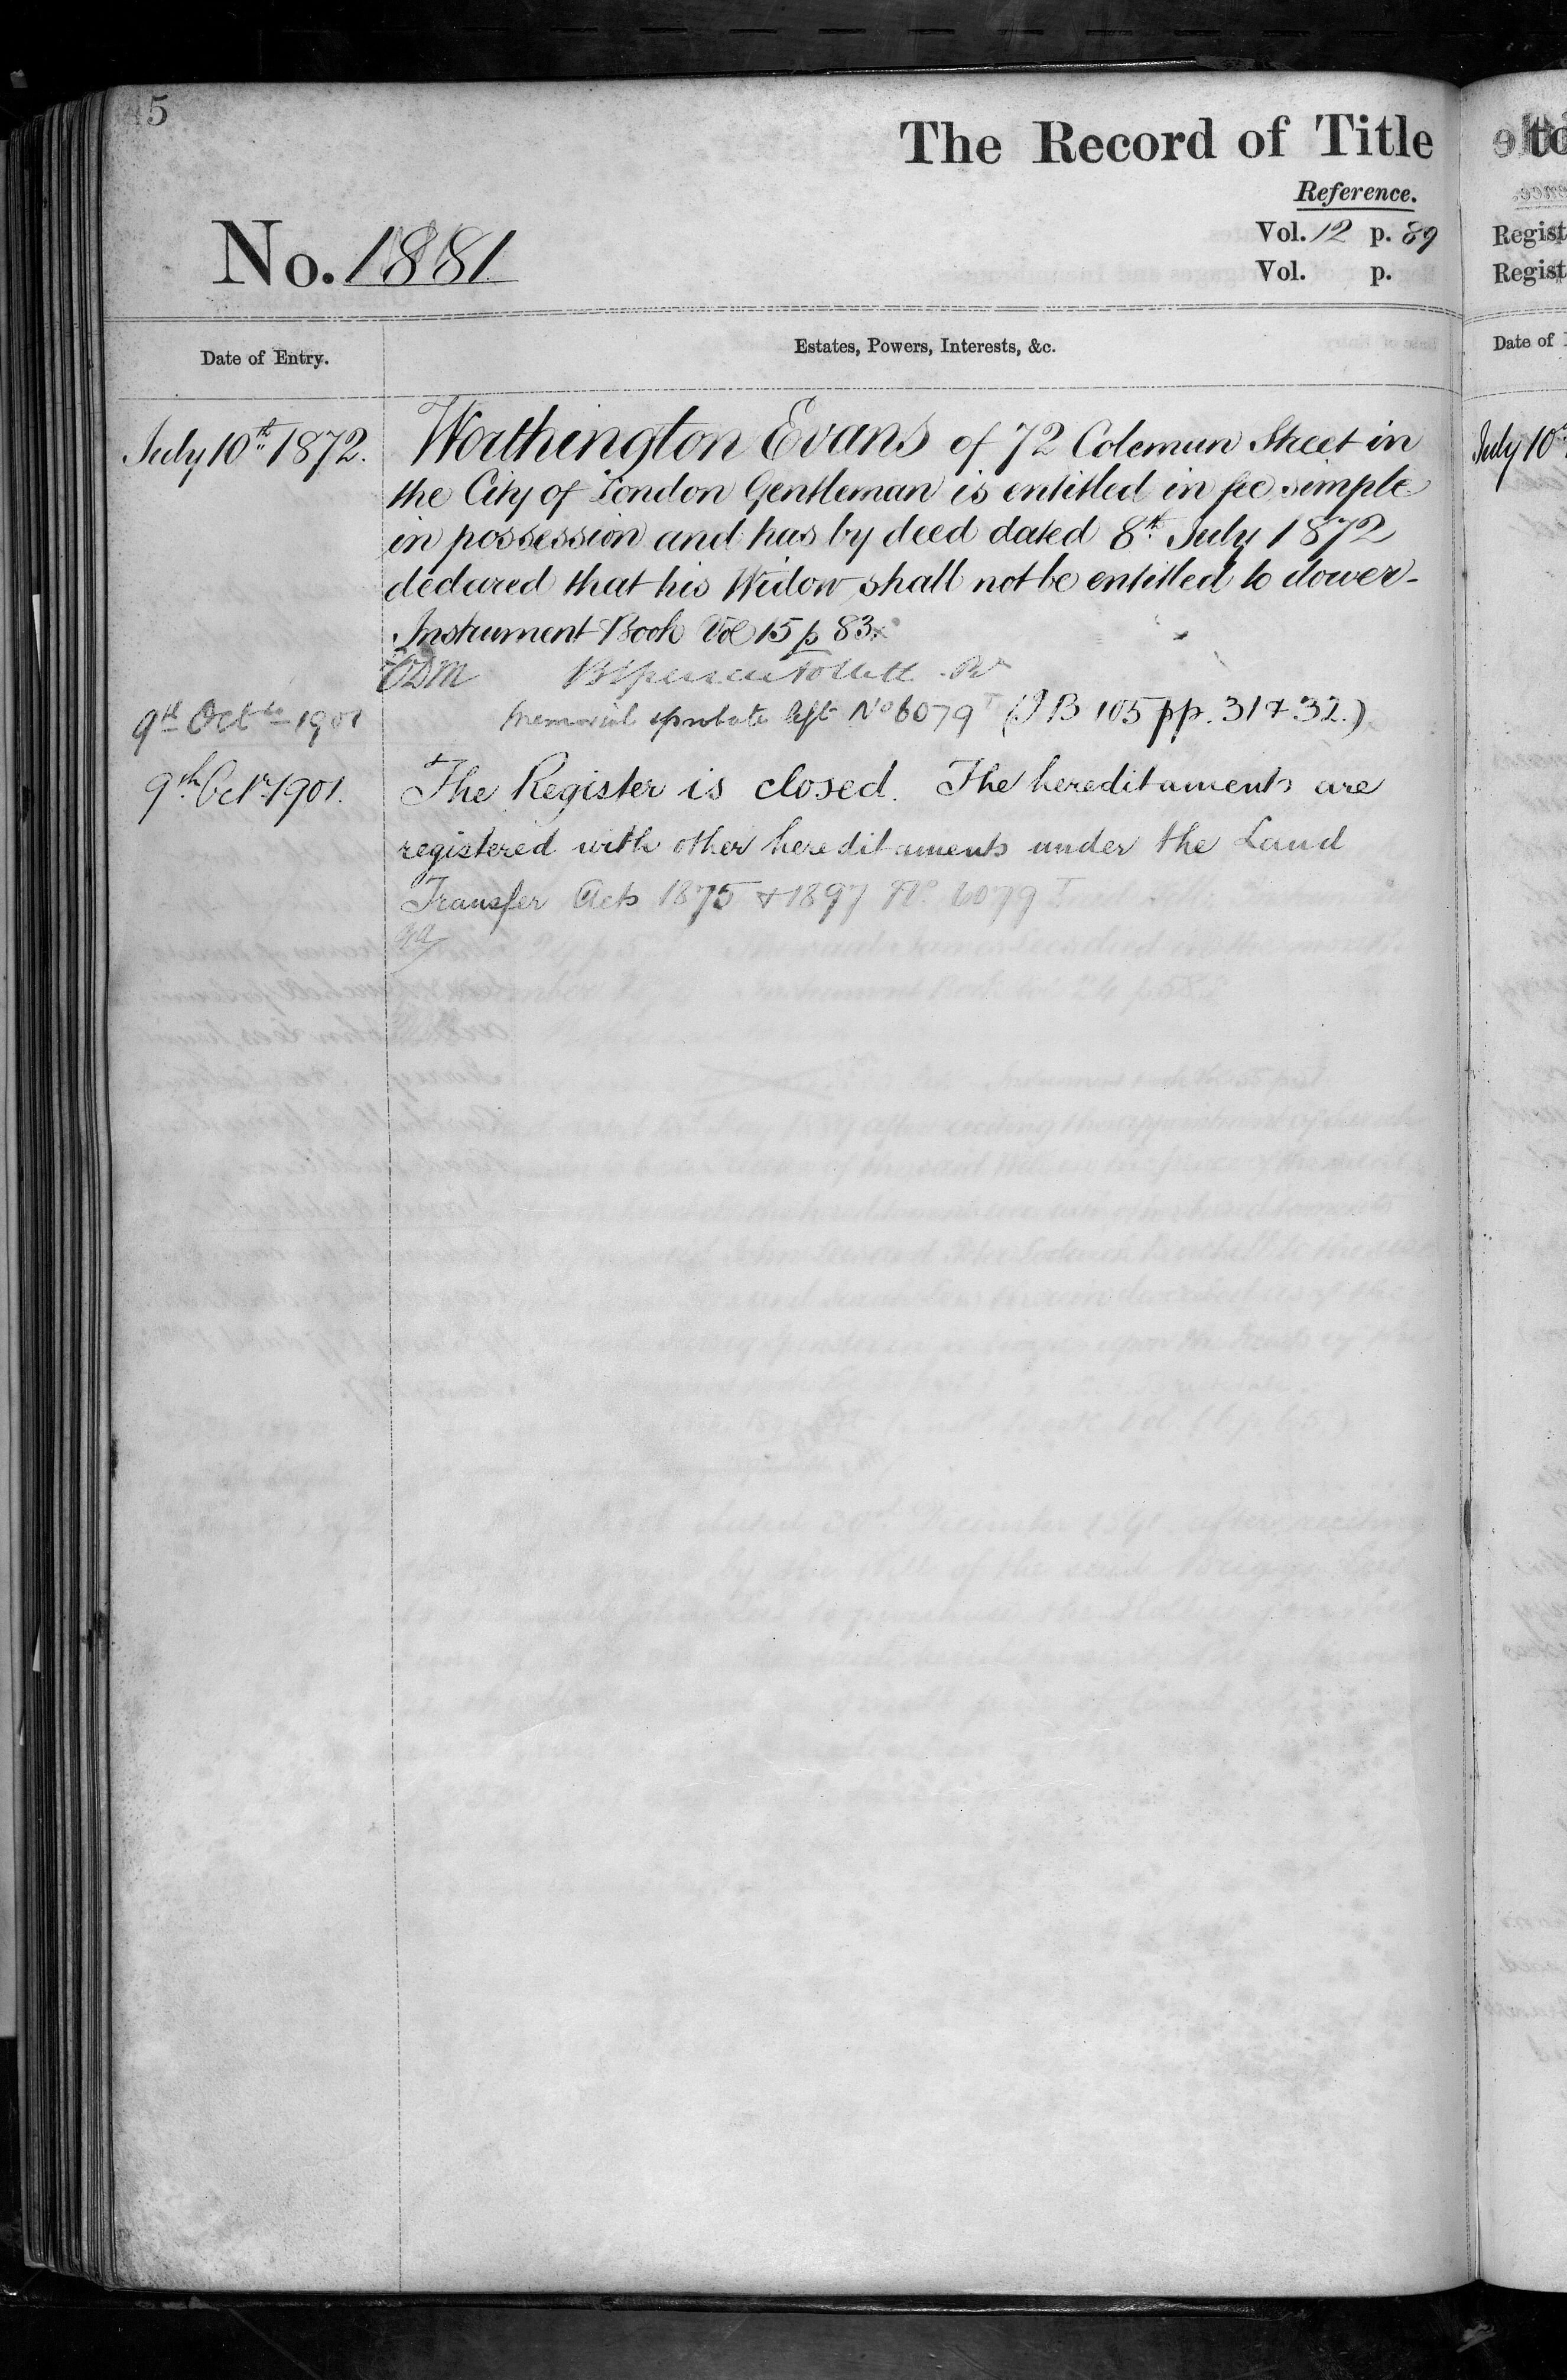 45
The Record of Title
Reference.
No. 1881
Vol. 12 p. 89
Vol. p.
Date of Entry.
Estates, Powers, Interests, &c.
July 10th 1872.
Worthington Evans of 72 Coleman Street in
the City of London Gentleman is entitled in fee simple
in possession and has by deed dated 8th July 1872
declared that his Widow shall not be entitled to dower -
Instrument Book Vol 15 p 83.
9th Octbr 1901
Memorial probate left No 6079 (I B 105 pp. 31 & 32.)
9th Octr 1901.
The Register is closed. The hereditaments are
registered with other hereditaments under the Land
Transfer Acts 1875 & 1897 No. 6079
Regist
Regist
Date of
July 10th